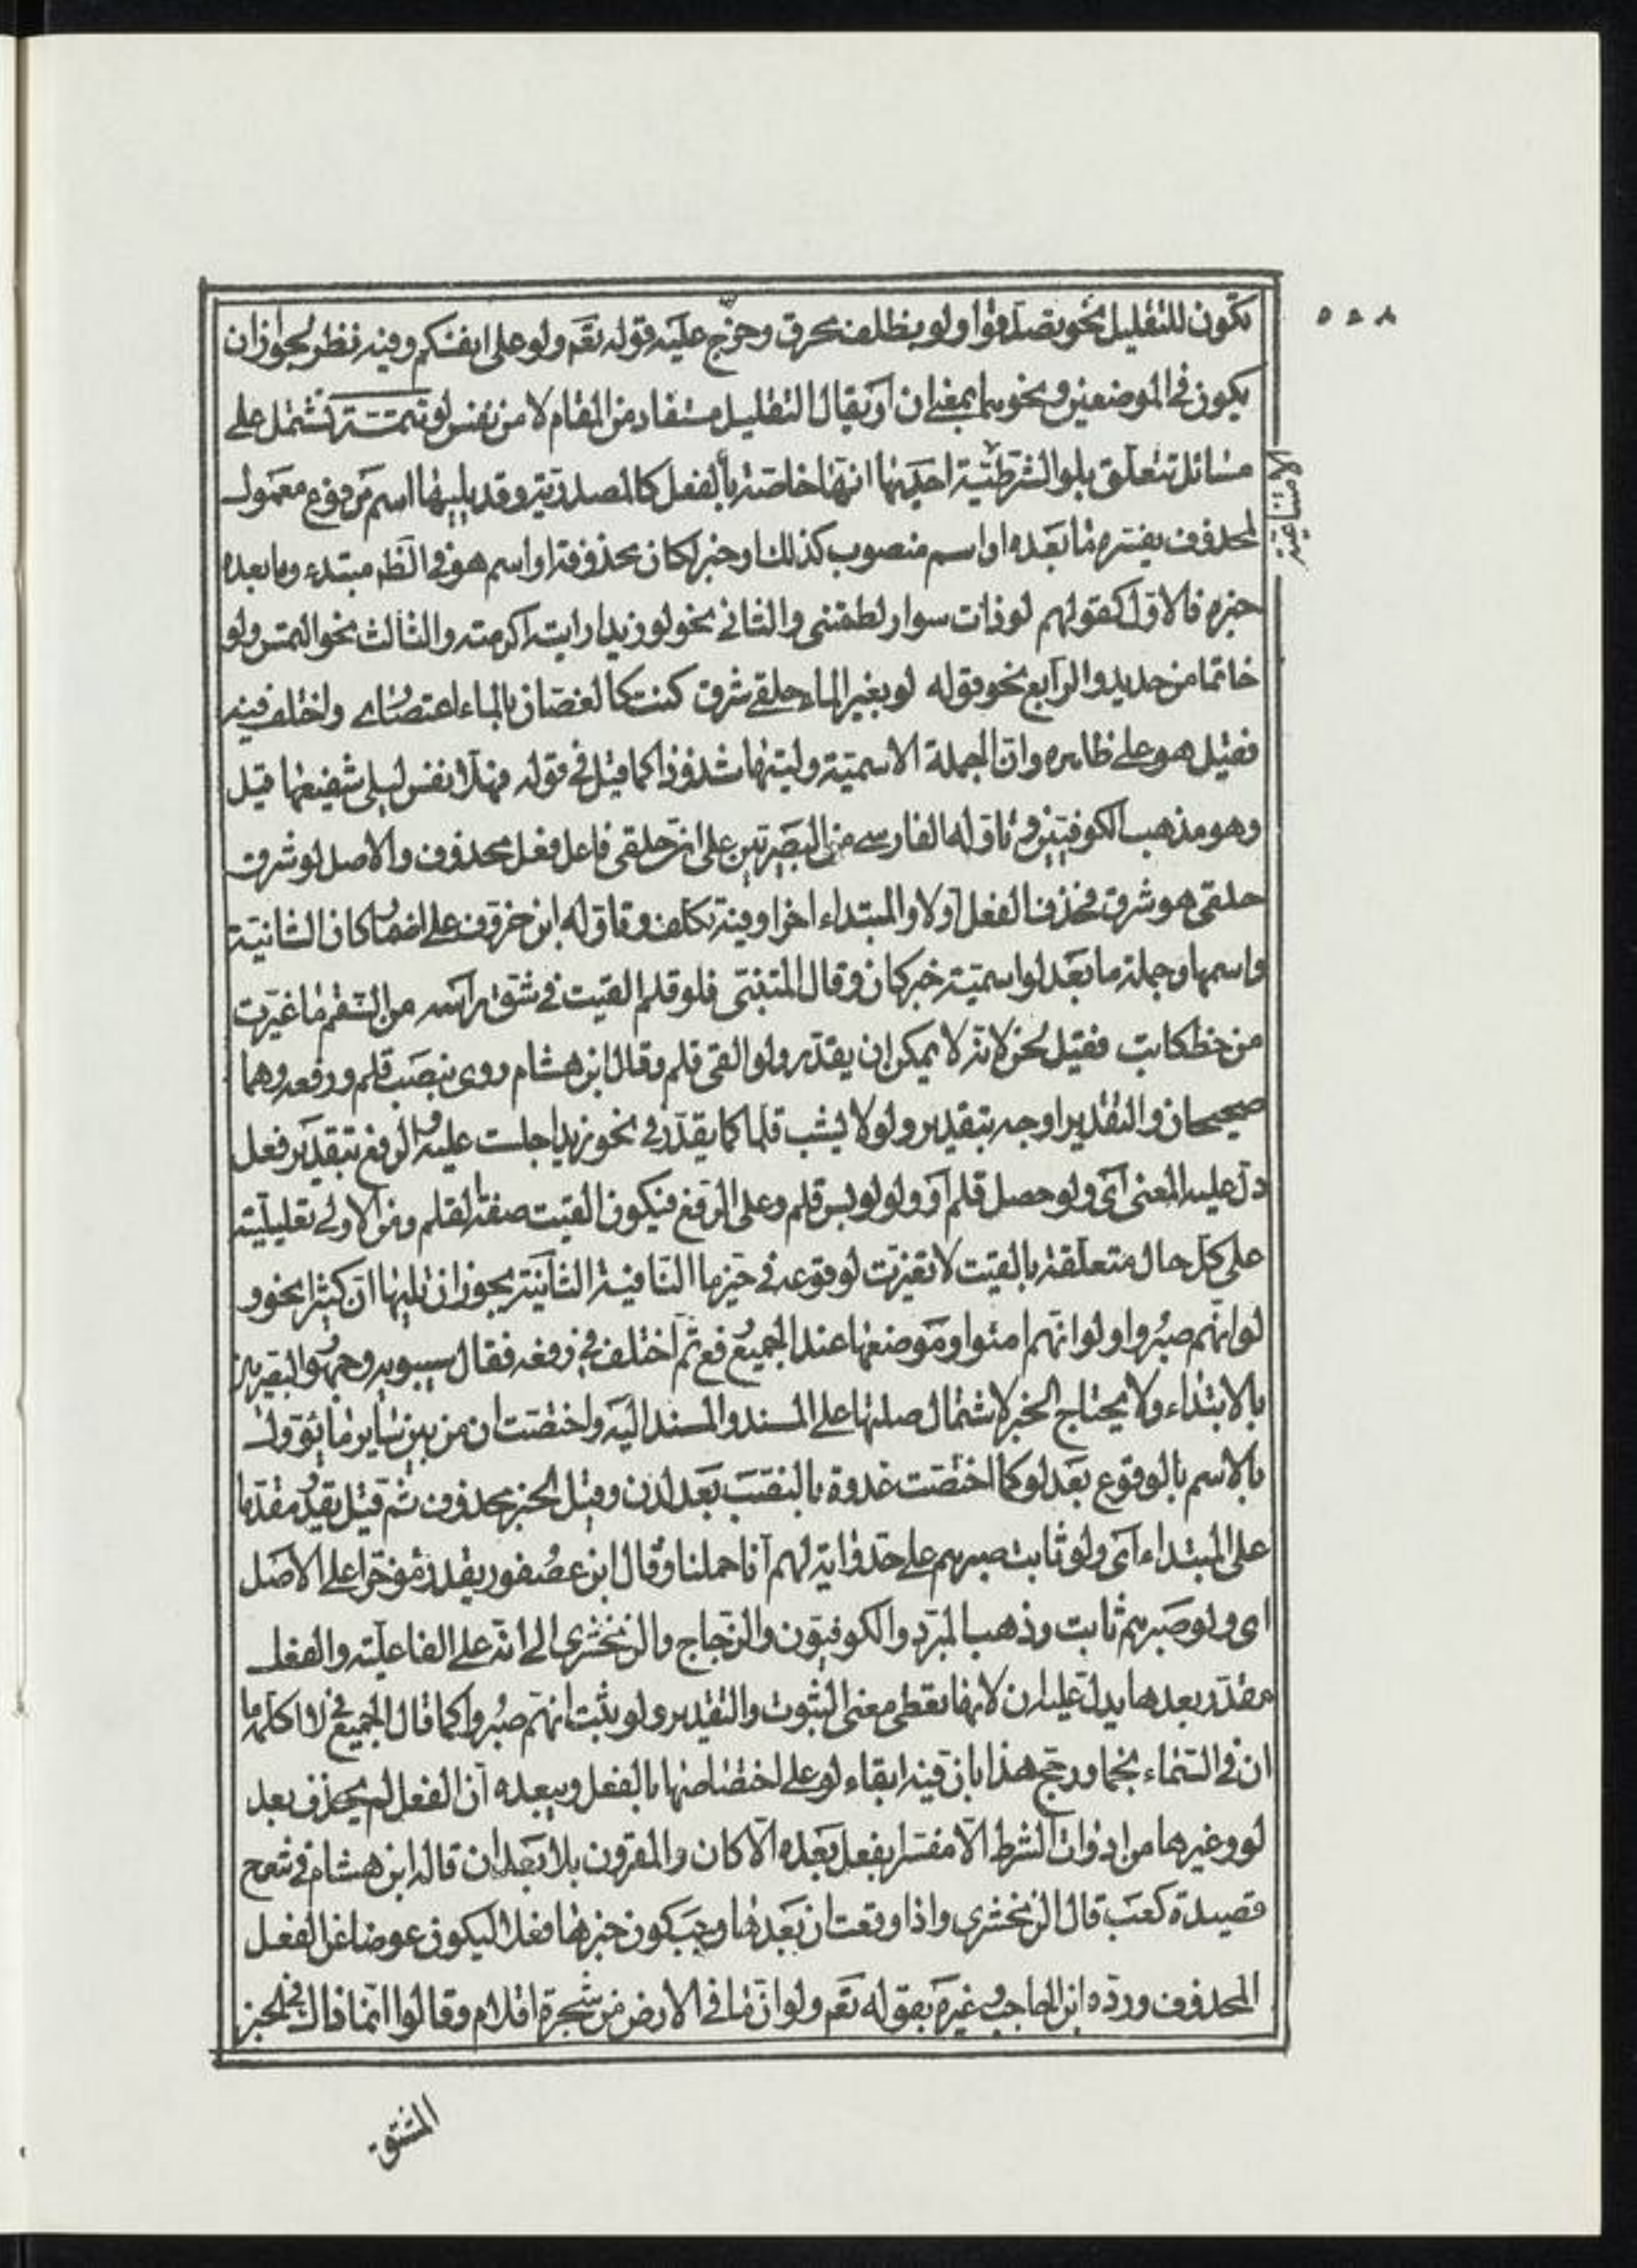 ٥٥٨
تكون للتقليل نحو تصدقوا ولو بظلف محرق وخرج عليه قوله تعم ولو على انفسكم وفيه نظر لجواز ان
يكون في الموضعين ونحوهما بمعنى ان او يقال التقليل مستفاد من المقام لا من نفس لو تتمة تشتمل على
مسائل تتعلق بلو الشرطية احديها انها خاصة بالفعل كالمصدرية وقد يليها اسم مرفوع معمول
الامتناعية
لمحذوف يفسره ما بعده او اسم منصوب كذلك او خبر لكان محذوفة او اسم هو في الظ مبتدء وما بعده
خبره فالاول كقولهم لو ذات سوار لطمتني والثاني نحو لو زيدا رايته اكرمته والثالث نحو التمس ولو
خاتما من حديد والرابع نحو قوله لو بغير الماء حلقي شرق كنت كالغصان بالماء اعتصاري واختلف فيه
فقيل هو على ظاهره وان الجملة الاسمية وليتها شذوذا كما قيل في قوله فهلا نفس ليلى شفيعها قيل
وهو مذهب الكوفيين وتاوله الفارسي من البصريين على ان حلقي فاعل فعل محذوف والاصل لو شرق
حلقي هو شرق فحذف الفعل اولا والمبتداء اخرا وفيه تكلف وتاوله ابن خروف على اضمار كان الشانية
واسمها وجملة ما بعد لو اسمية خبر كان وقال المتنبي فلو قلم القيت في شق راسه من السقم ما غيرت
من خط كاتب فقيل لحن لانه لا يمكن ان يقدر ولو القي قلم وقال ابن هشام روي بنصب قلم ورفعه وهما
صحيحان والتقدير اوجه بتقدير ولو لابست قلما كما يقدر في نحو زيدا جلست عليه والرفع بتقدير فعل
دل عليه المعنى اي ولو حصل قلم او ولو لوبس قلم وعلى الرفع فيكون القيت صفة لقلم ومن الاولى تعليلية
على كل حال متعلقة بالقيت لا بغيرت لوقوعه في حيز ما النافية الثانية يجوز ان تليها ان كثيرا نحو و
لو انهم صبروا ولو انهم امنوا وموضعها عند الجميع رفع ثم اختلف في رفعه فقال سيبويه وجمهور البصريين
بالابتداء ولا يحتاج الخبر لاشتمال صلتها على المسند والمسند اليه واختصت ان من بين ساير ما يؤول
بالاسم بالوقوع بعد لو كما اختصت غدوة بالنصب بعد لدن وقيل الخبر محذوف ثم قيل يقدر مقدما
على المبتداء اي ولو ثابت صبرهم على حد واية لهم انا حملنا وقال ابن عصفور يقدر مؤخرا على الاصل
اي ولو صبرهم ثابت وذهب المبرد والكوفيون والزجاج والزمخشري الى انه على الفاعلية والفعل
مقدر بعدها يدل عليه ان لانها تعطي معنى الثبوت والتقدير ولو ثبت انهم صبروا كما قال الجميع في لا اكلمه ما
ان في السماء نجما ورجح هذا بان فيه ابقاء لو على اختصاصها بالفعل ويبعده ان الفعل لم يحذف بعد
لو وغيرها من ادوات الشرط الا مفسرا بفعل بعده الا كان والمقرون بلا بعد ان قاله ابن هشام في شرح
قصيدة كعب قال الزمخشري واذا وقعت ان بعدها وجب كون خبرها فعلا ليكون عوضا عن الفعل
المحذوف ورده ابن الحاجب وغيره بقوله تعم ولو ان ما في الارض من شجرة اقلام وقالوا انما ذاك في الخبر
المشتق